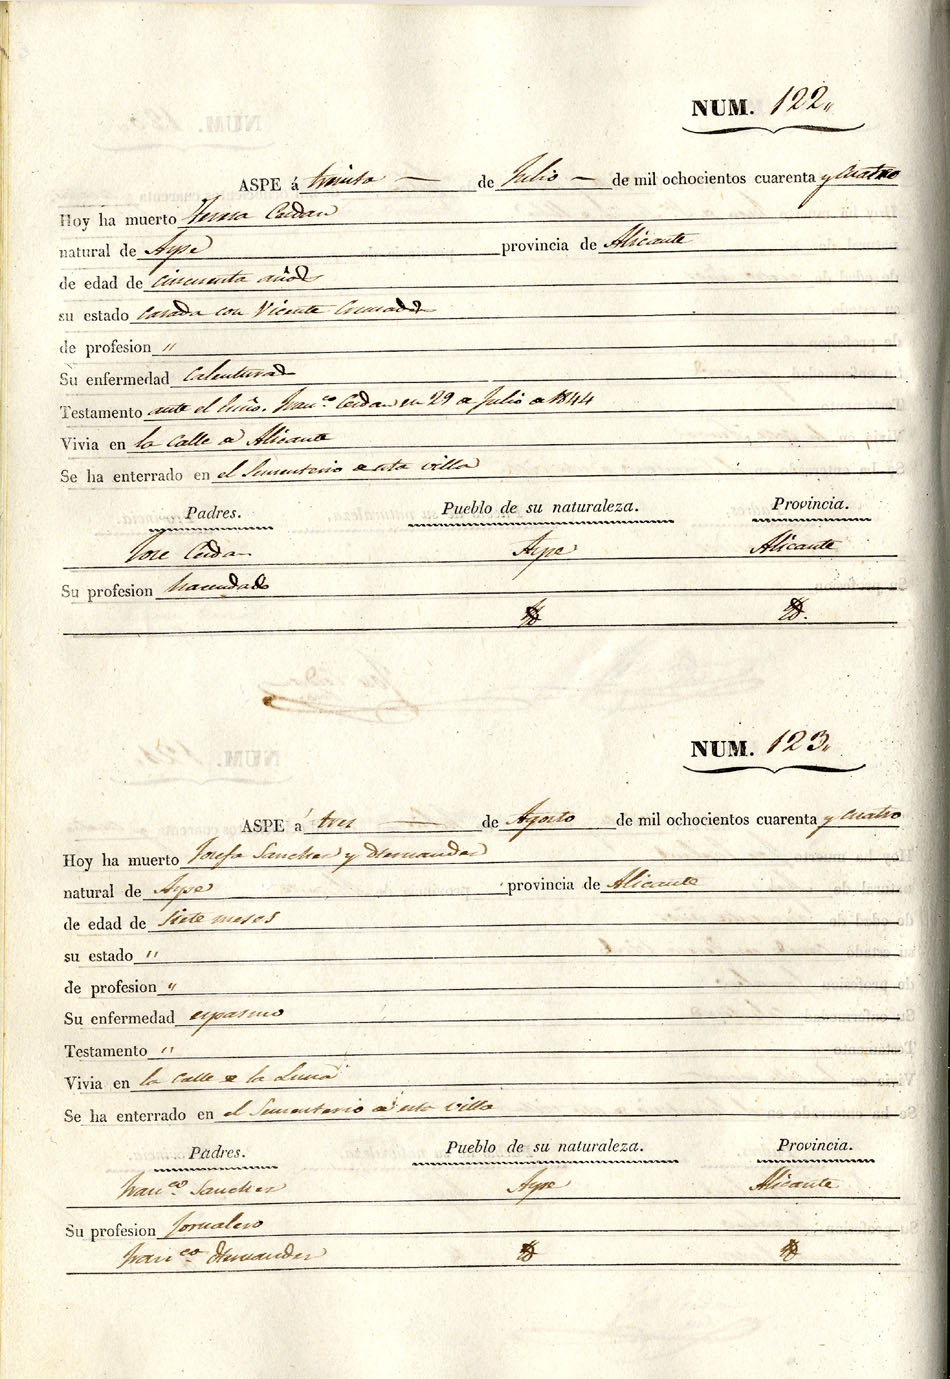 NUM. 122„
ASPE á treinta — de Julio — de mil ochocientos cuarenta y cuatro
Hoy ha muerto Teresa Cerdan
natural de Aspe provincia de Alicante
de edad de cincuenta años
su estado casada con Vicente Cremades
de profesion „
Su enfermedad Calenturas
Testamento ante el Franco. Cerdan en 29 de Julio de 1844
Vivia en la calle de Alicante
Se ha enterrado en el Sementerio de esta villa
Padres. Pueblo de su naturaleza. Provincia.
Jose Cerdan Aspe Alicante
Su profesion hacendado
NUM. 123„
ASPE á tres — de Agosto de mil ochocientos cuarenta y cuatro
Hoy ha muerto Josefa Sanchez y Hernandez
natural de Aspe provincia de Alicante
de edad de siete meses
su estado „
de profesion „
Su enfermedad espasmo
Testamento „
Vivia en la calle de la Luna
Se ha enterrado en el Sementerio de esta villa
Padres. Pueblo de su naturaleza. Provincia.
Franco. Sanchez Aspe Alicante
Su profesion Jornalero
Franca. Hernandez